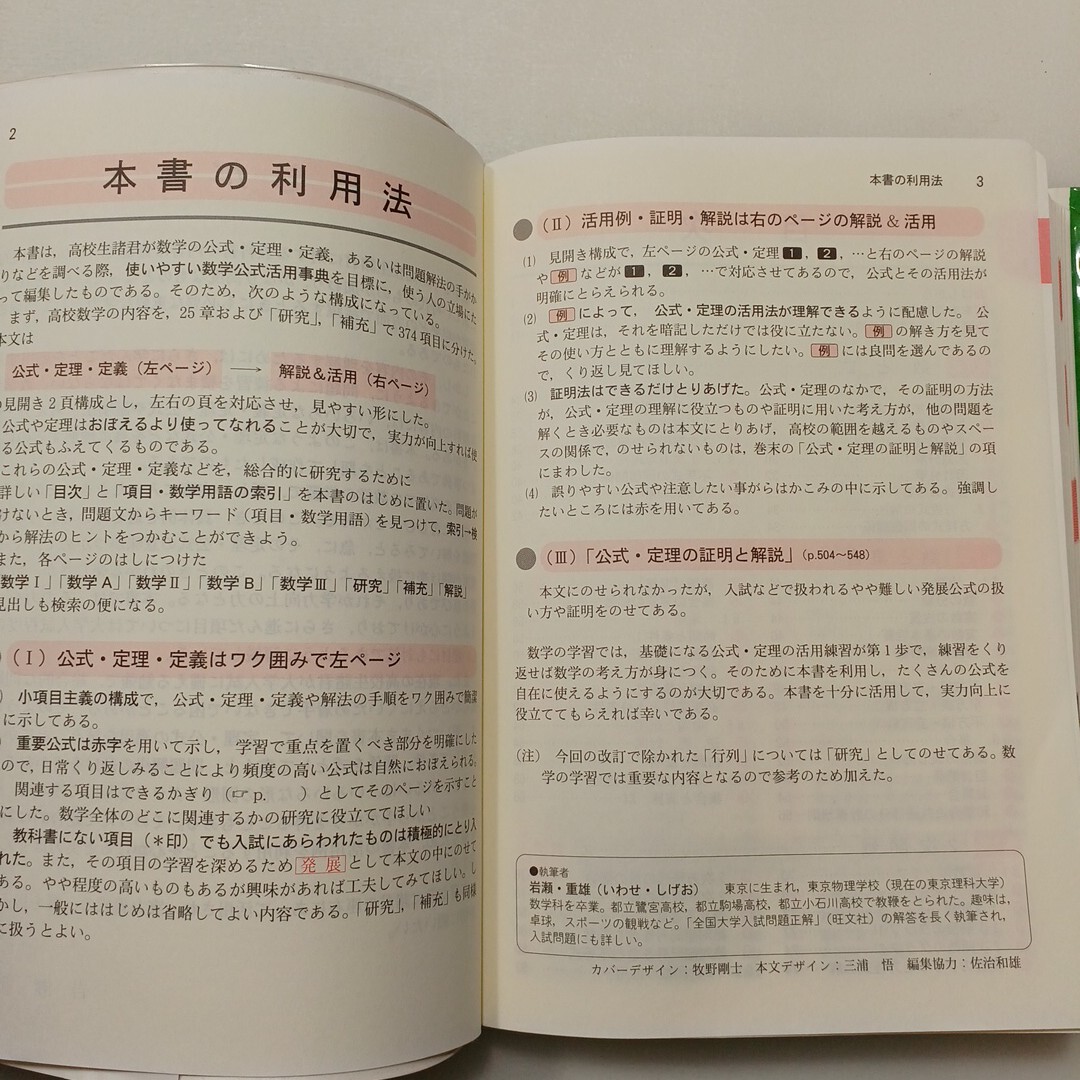 2
本書の利用法
本書は，高校生諸君が数学の公式・定理・定義，あるいは問題解法の手がか
りなどを調べる際，使いやすい数学公式活用事典を目標に，使う人の立場にた
って編集したものである。そのため，次のような構成になっている。
まず，高校数学の内容を，25章および「研究」，「補充」で374項目に分けた。
本文は
公式・定理・定義（左ページ） → 解説＆活用（右ページ）
の見開き2頁構成とし，左右の頁を対応させ，見やすい形にした。
公式や定理はおぼえるより使ってなれることが大切で，実力が向上すれば使
える公式もふえてくるものである。
これらの公式・定理・定義などを，総合的に研究するために
詳しい「目次」と「項目・数学用語の索引」を本書のはじめに置いた。問題が
けないとき，問題文からキーワード（項目・数学用語）を見つけて，索引→検
から解法のヒントをつかむことができよう。
また，各ページのはしにつけた
「数学Ⅰ」「数学A」「数学Ⅱ」「数学B」「数学Ⅲ」「研究」「補充」「解説」
見出しも検索の便になる。
（Ⅰ）公式・定理・定義はワク囲みで左ページ
小項目主義の構成で，公式・定理・定義や解法の手順をワク囲みで簡潔
に示してある。
重要公式は赤字を用いて示し，学習で重点を置くべき部分を明確にした
ので，日常くり返しみることにより頻度の高い公式は自然におぼえられる。
関連する項目はできるかぎり（☞p.　　）としてそのページを示すこと
にした。数学全体のどこに関連するかの研究に役立ててほしい
教科書にない項目（＊印）でも入試にあらわれたものは積極的にとり入
れた。また，その項目の学習を深めるため 発展 として本文の中にのせて
ある。やや程度の高いものもあるが興味があれば工夫してみてほしい。し
かし，一般にははじめは省略してよい内容である。「研究」，「補充」も同様
に扱うとよい。
本書の利用法　3
（Ⅱ）活用例・証明・解説は右のページの解説＆活用
(1) 見開き構成で，左ページの公式・定理 1，2，…と右のページの解説
や 例 などが 1，2，…で対応させてあるので，公式とその活用法が
明確にとらえられる。
(2) 例 によって，公式・定理の活用法が理解できるように配慮した。公
式・定理は，それを暗記しただけでは役に立たない。例 の解き方を見て
その使い方とともに理解するようにしたい。例 には良問を選んであるの
で，くり返し見てほしい。
(3) 証明法はできるだけとりあげた。公式・定理のなかで，その証明の方法
が，公式・定理の理解に役立つものや証明に用いた考え方が，他の問題を
解くとき必要なものは本文にとりあげ，高校の範囲を越えるものやスペー
スの関係で，のせられないものは，巻末の「公式・定理の証明と解説」の項
にまわした。
(4) 誤りやすい公式や注意したい事がらはかこみの中に示してある。強調し
たいところには赤を用いてある。
（Ⅲ）「公式・定理の証明と解説」（p.504～548）
本文にのせられなかったが，入試などで扱われるやや難しい発展公式の扱
い方や証明をのせてある。
数学の学習では，基礎になる公式・定理の活用練習が第1歩で，練習をくり
返せば数学の考え方が身につく。そのために本書を利用し，たくさんの公式を
自在に使えるようにするのが大切である。本書を十分に活用して，実力向上に
役立ててもらえれば幸いである。
（注） 今回の改訂で除かれた「行列」については「研究」としてのせてある。数
学の学習では重要な内容となるので参考のため加えた。
●執筆者
岩瀬・重雄（いわせ・しげお）　東京に生まれ，東京物理学校（現在の東京理科大学）
数学科を卒業。都立鷺宮高校，都立駒場高校，都立小石川高校で教鞭をとられた。趣味は，
卓球，スポーツの観戦など。「全国大学入試問題正解」（旺文社）の解答を長く執筆され，
入試問題にも詳しい。
カバーデザイン：牧野剛士　本文デザイン：三浦　悟　編集協力：佐治和雄